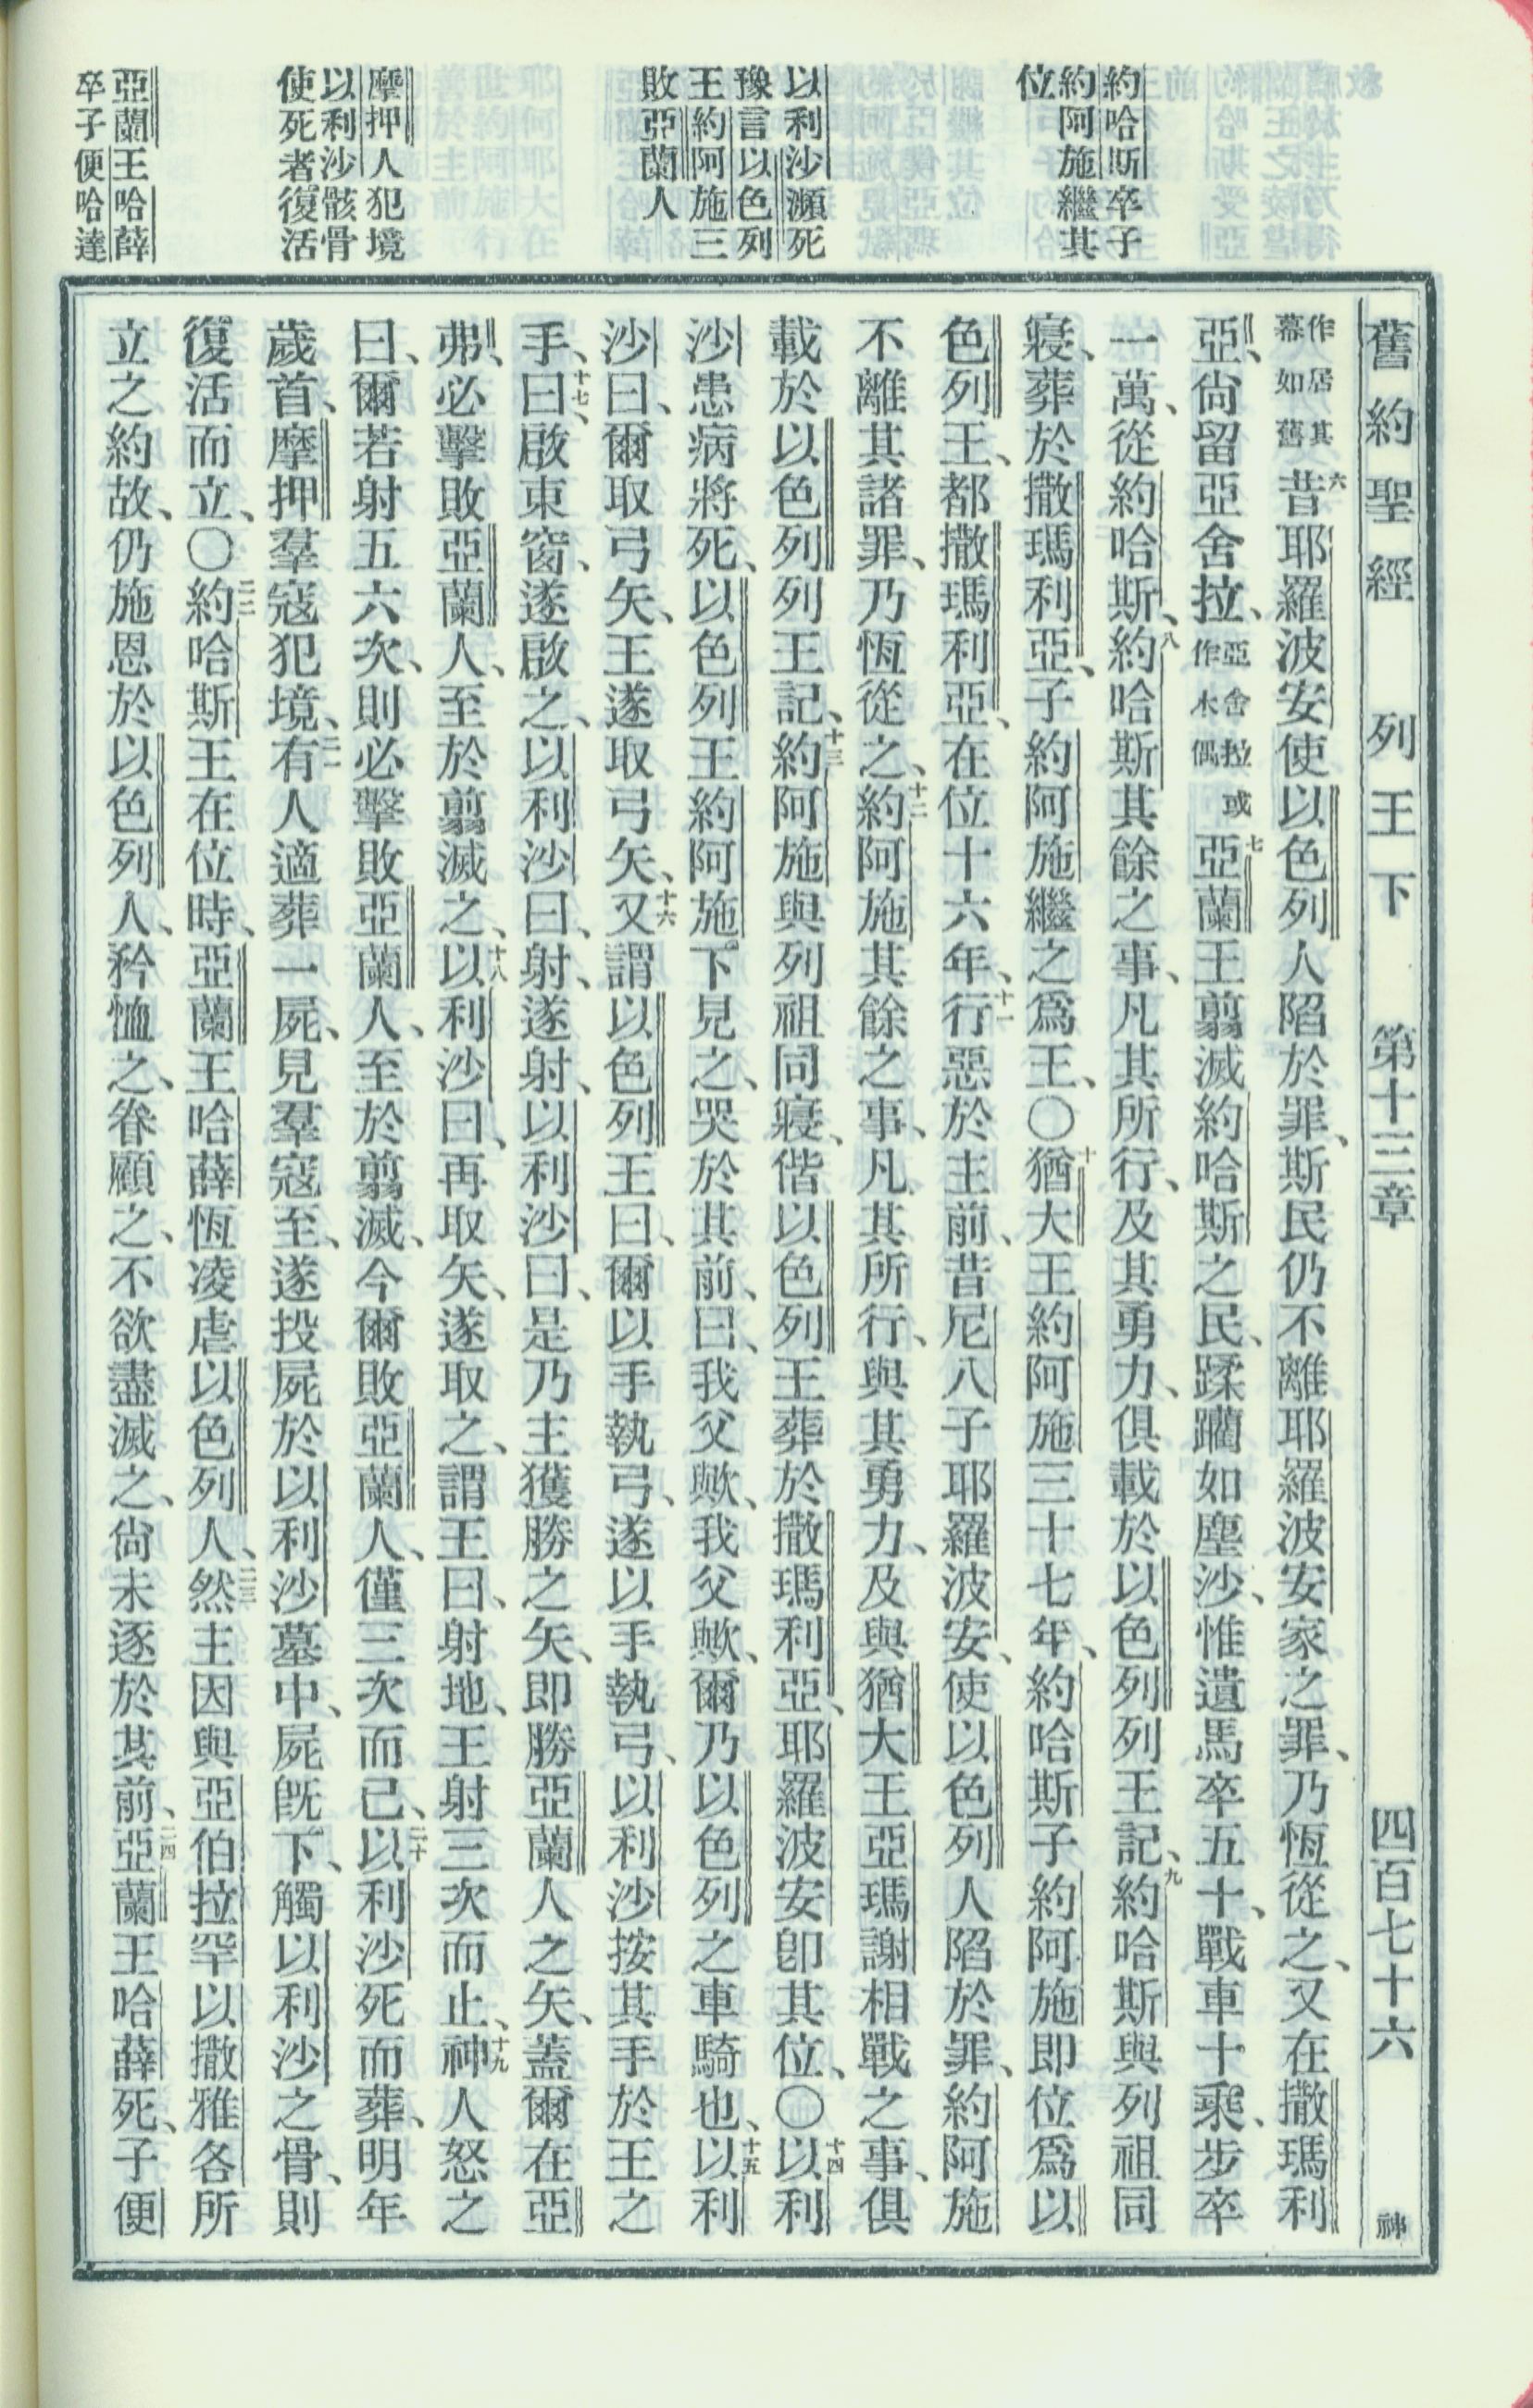 約哈斯卒子
約阿施繼其
位
以利沙瀕死
豫言以色列
王約阿施三
敗亞蘭人
摩押人犯境
以利沙骸骨
使死者復活
亞蘭王哈薛
卒子便哈達
舊約聖經 列王下 第十三章 四百七十六 神
作居其幕如舊六昔耶羅波安使以色列人陷於罪、斯民仍不離耶羅波安家之罪、乃恆從之、又在撒瑪利
亞、尙留亞舍拉、亞舍拉或作木偶七亞蘭王翦滅約哈斯之民、蹂躪如塵沙、惟遺馬卒五十、戰車十乘、步卒
一萬、從約哈斯、八約哈斯其餘之事、凡其所行、及其勇力、俱載於以色列列王記、九約哈斯與列祖同
寢、葬於撒瑪利亞、子約阿施繼之爲王、〇十猶大王約阿施三十七年、約哈斯子約阿施即位爲以
色列王、都撒瑪利亞、在位十六年、十一行惡於主前、昔尼八子耶羅波安、使以色列人陷於罪、約阿施
不離其諸罪、乃恆從之、十二約阿施其餘之事、凡其所行、與其勇力、及與猶大王亞瑪謝相戰之事、俱
載於以色列列王記、十三約阿施與列祖同寢、偕以色列王葬於撒瑪利亞、耶羅波安卽其位、〇十四以利
沙患病將死、以色列王約阿施下見之、哭於其前、曰、我父歟、我父歟、爾乃以色列之車騎也、十五以利
沙曰、爾取弓矢、王遂取弓矢、十六又謂以色列王曰、爾以手執弓、遂以手執弓、以利沙按其手於王之
手、十七曰、啟東窗、遂啟之、以利沙曰、射、遂射、以利沙曰、是乃主獲勝之矢、即勝亞蘭人之矢、蓋爾在亞
弗、必擊敗亞蘭人、至於翦滅之、十八以利沙曰、再取矢、遂取之、謂王曰、射地、王射三次而止、十九神人怒之
曰、爾若射五六次、則必擊敗亞蘭人、至於翦滅、今爾敗亞蘭人、僅三次而已、二十以利沙死而葬、明年
歲首、摩押羣寇犯境、二一有人適葬一屍、見羣寇至、遂投屍於以利沙墓中、屍既下、觸以利沙之骨、則
復活而立、〇二二約哈斯王在位時、亞蘭王哈薛恆凌虐以色列人、二三然主因與亞伯拉罕以撒雅各所
立之約故、仍施恩於以色列人、矜恤之、眷顧之、不欲盡滅之、尙未逐於其前、二四亞蘭王哈薛死、子便